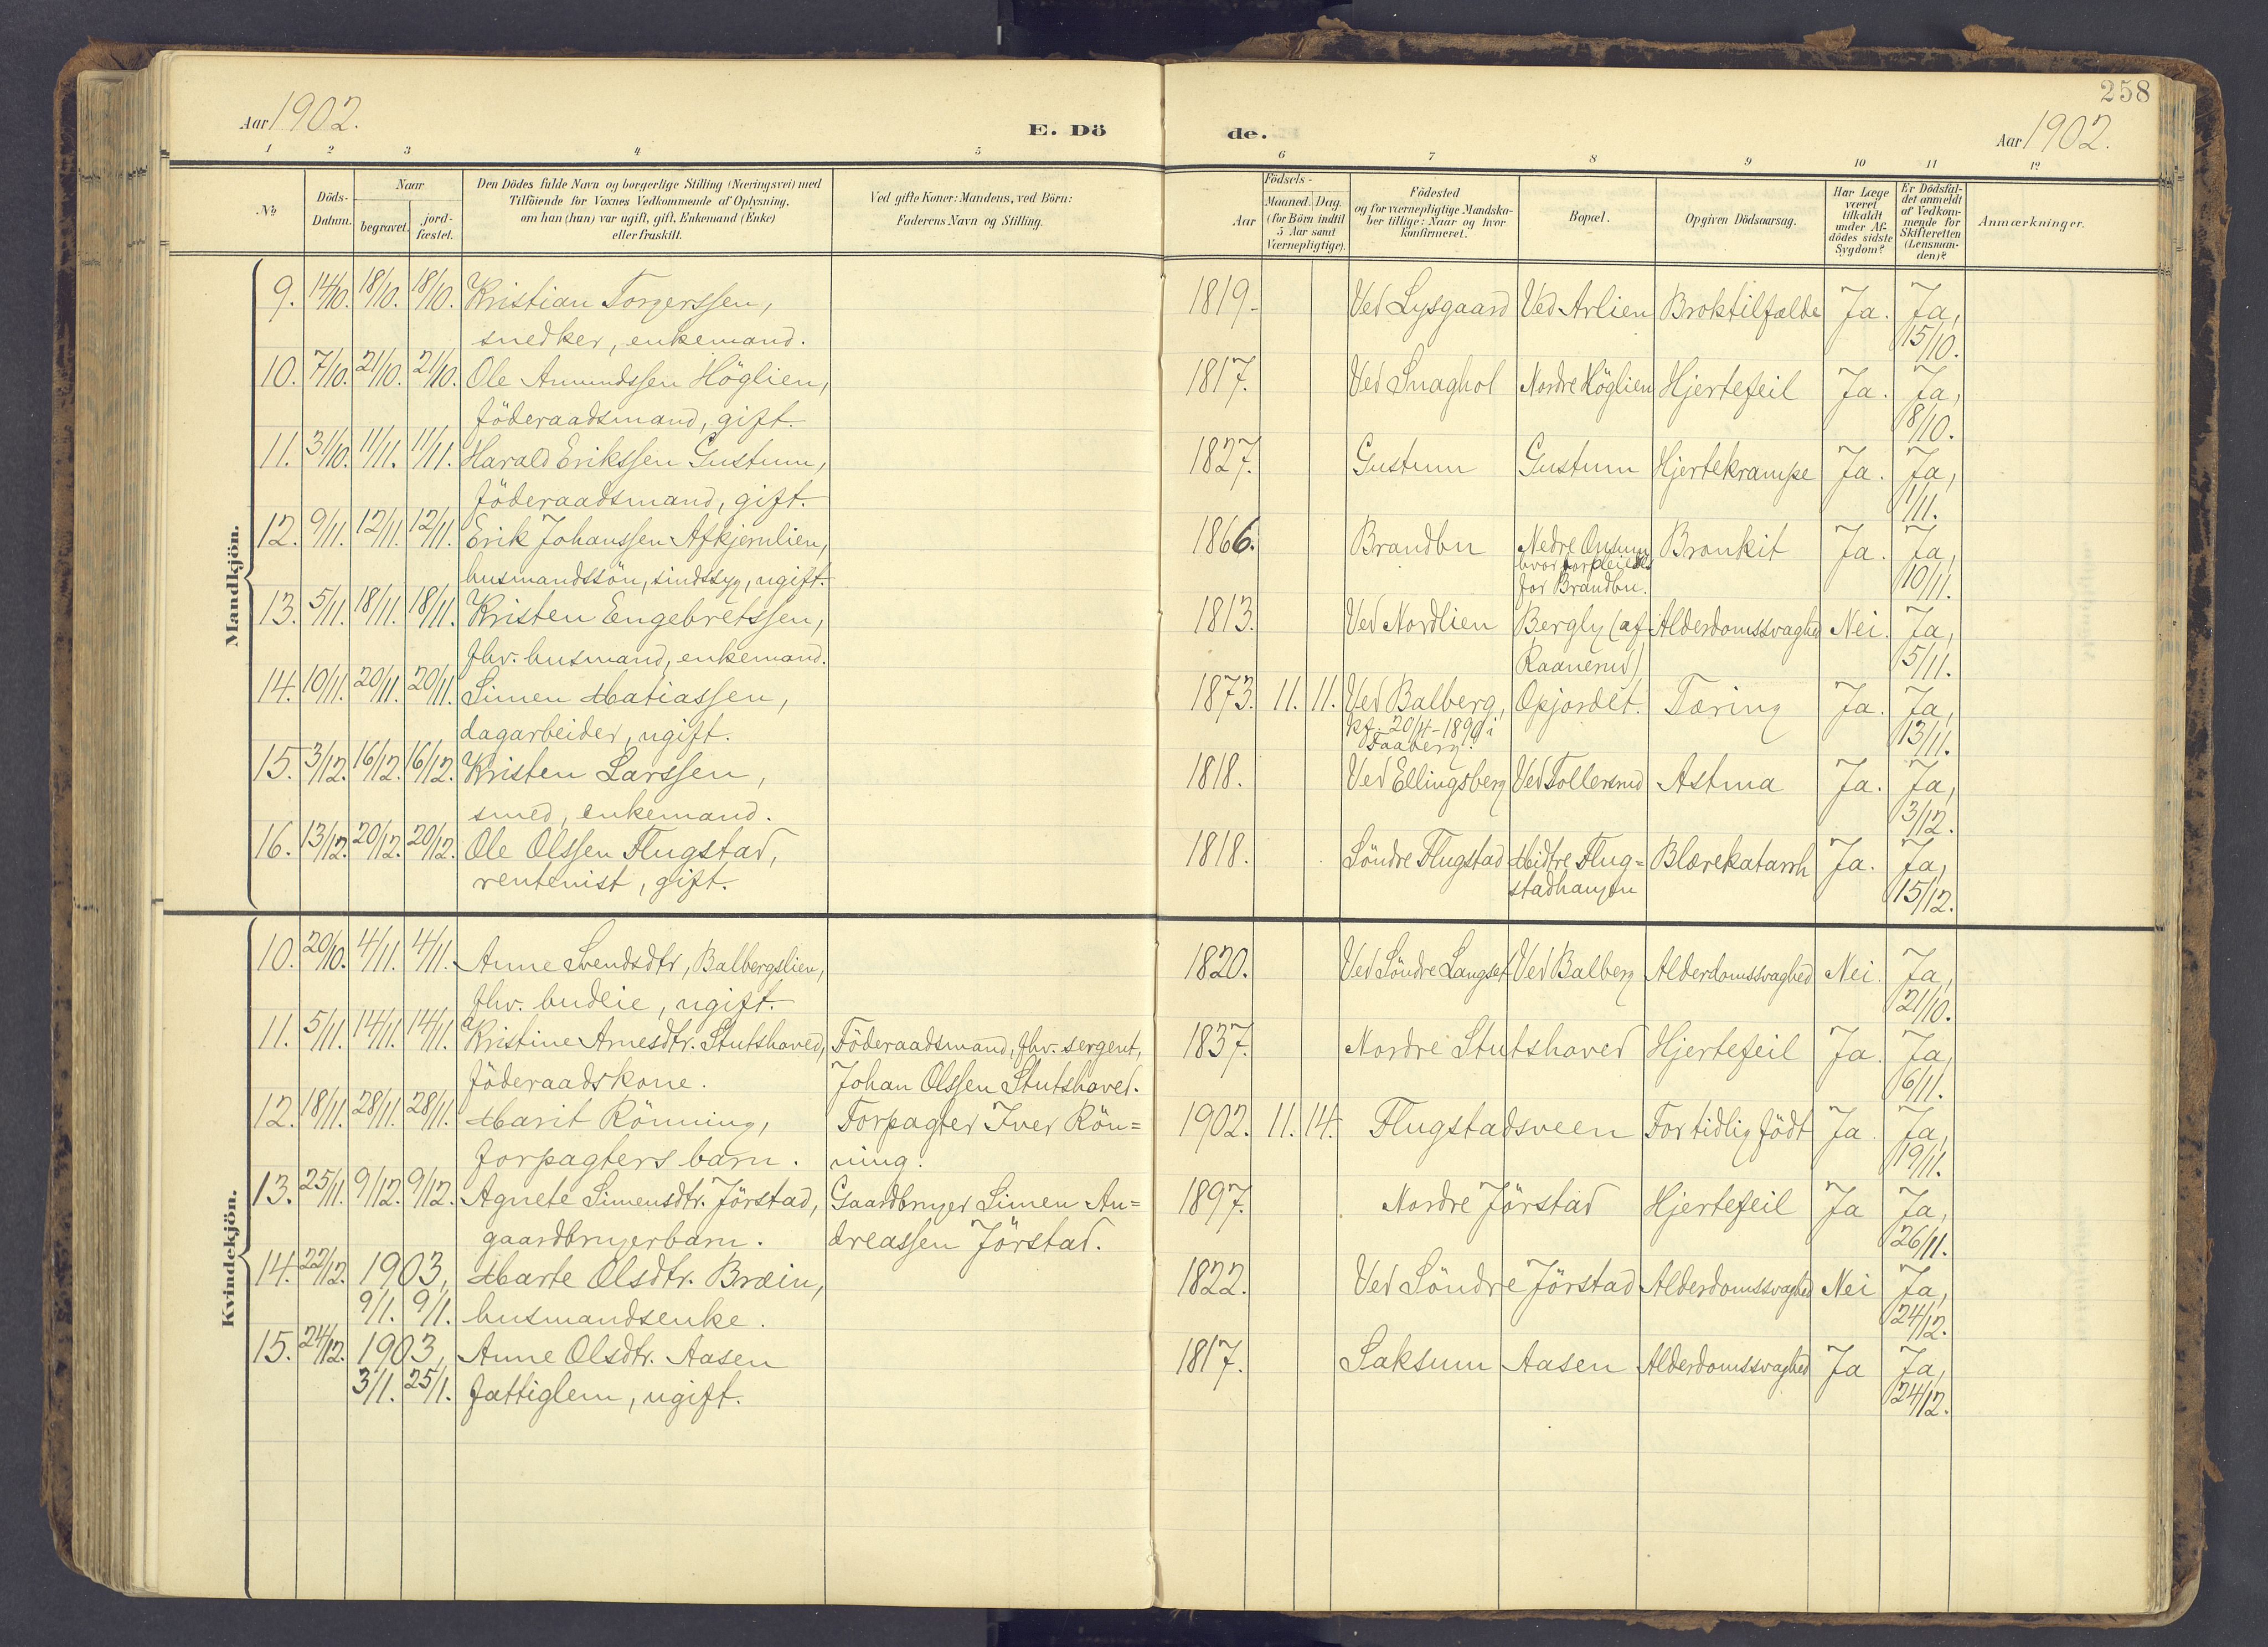 258
Aar 1902.
E. Dö
de.
Aar 1902.
1 2 3 4 5 6 7 8 9 10 11 12
№
Döds-
Datum.
Naar
begravet.
jord-
fæstet.
Den Dödes fulde Navn og borgerlige Stilling (Næringsvei) med
Tilföiende for Voxnes Vedkommende af Oplysning,
om han (hun) var ugift, gift, Enkemand (Enke)
eller fraskilt.
Ved gifte Koner: Mandens, ved Börn:
Faderens Navn og Stilling.
Födsels-
Aar
Maaned. Dag.
(for Börn indtil
5 Aar samt
Værnepligtige).
Födested
og for værnepligtige Mandska-
ber tillige: Naar og hvor
konfirmeret.
Bopæl.
Opgiven Dödsaarsag.
Har Læge
været
tilkaldt
under Af-
dödes sidste
Sygdom?
Er Dödsfal-
det anmeldt
af Vedkom-
mende for
Skifteretten
(Lensman-
den)?
Anmærkninger.
Mandkjön.
9. 14/10. 18/10. 18/10. Kristian Torgerssen, 1819. Ved Lysgaard Ved Arlien Broktilfælde Ja. Ja,
snedker, enkemand. 15/10.
10. 7/10. 21/10. 21/10. Ole Amundssen Höglien, 1817. Ved Snaghol Nordre Höglien Hjertefeil Ja. Ja,
föderaadsmand, gift. 8/10.
11. 31/10. 11/11. 11/11. Harald Erikssen Gustum, 1827. Gustum Gustum Hjertekrampe Ja. Ja,
föderaadsmand, gift. 1/11.
12. 9/11. 12/11. 12/11. Erik Johanssen Afkjernlien, 1866. Brandbu Nedre Onsum Bronkit Ja. Ja,
husmandssön, sindssyg, ugift. hvor forpleiedes 10/11.
for Brandbu.
13. 5/11. 18/11. 18/11. Kristen Engebretssen, 1813. Ved Nordlien Bergly (af Alderdomssvaghed Nei. Ja,
fhv. husmand, enkemand. Raanerud) 5/11.
14. 10/11. 20/11. 20/11. Simen Matiassen, 1873. 11. 11. Ved Balberg, Opjordet. Tæring Ja. Ja,
dagarbeider, ugift. kf. 20/4-1890 i 13/11.
Faaberg.
15. 3/12. 16/12. 16/12. Kristen Larssen, 1818. Ved Ellingsberg Ved Tollersrud Astma Ja. Ja,
smed, enkemand. 3/12.
16. 13/12. 20/12. 20/12. Ole Olssen Flugstad, 1818. Söndre Flugstad Midtre Flug= Blærekatarrh Ja. Ja,
rentenist, gift. stadhaugen 15/12.
Kvindekjön.
10. 20/10. 4/11. 4/11. Anne Svendsdtr, Balbergslien, 1820. Ved Söndre Langset Ved Balberg Alderdomssvaghed Nei. Ja,
fhv. budeie, ugift. 21/10.
11. 5/11. 14/11. 14/11. Kristine Arnesdtr. Stutshoved, Föderaadsmand, fhv. sergent, 1837. Nordre Stutshoved Hjertefeil Ja. Ja,
föderaadskone. Johan Olssen Stutshoved. 6/11.
12. 18/11. 28/11. 28/11. Marit Rönning, Forpagter Iver Rön= 1902. 11. 14. Flugstadsveen For tidlig födt Ja. Ja,
forpagters barn. ning. 19/11.
13. 25/11. 9/12. 9/12. Agnete Simensdtr. Jörstad, Gaardbruger Simen An= 1897. Nordre Jörstad Hjertefeil Ja Ja,
gaardbrugerbarn. dreassen Jörstad. 26/11.
14. 22/12. 1903, Marte Olsdtr. Bræin, 1822. Ved Söndre Jörstad Alderdomssvaghed Nei Ja,
9/1. 9/1. husmandsenke. 24/12.
15. 24/12. 1903, Anne Olsdtr. Aasen 1817. Saksum Aasen Alderdomssvaghed Ja Ja,
3/1. 25/1. fattiglem, ugift. 24/12.